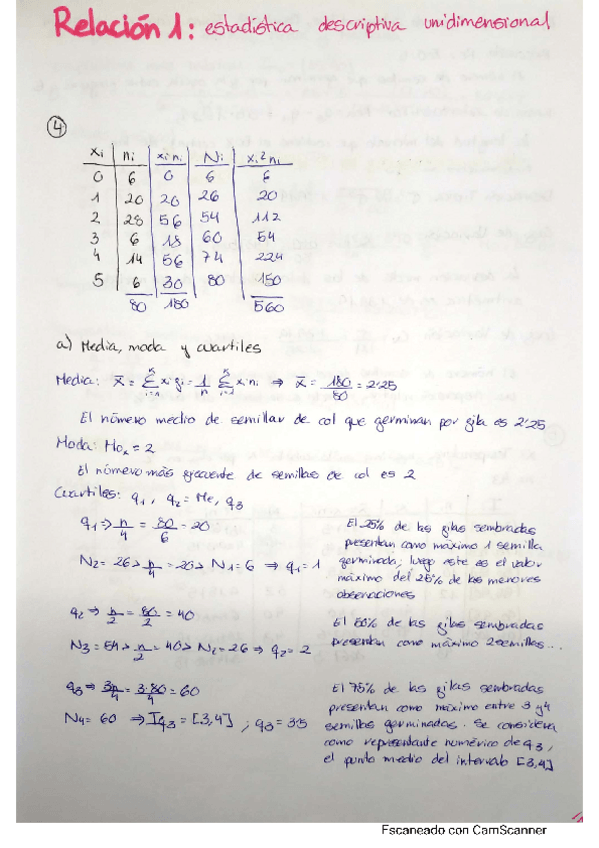 Relación 1: estadística descriptiva unidimensional
4
xi ni xi ni Ni xi² ni
0 6 0 6 6
1 20 20 26 20
2 28 56 54 112
3 6 18 60 54
4 14 56 74 224
5 6 30 80 150
80 180 560
a) Media, moda y cuartiles
Media: x̄ = Σ xi fi = 1/n Σ xi ni ⇒ x̄ = 180/80 = 2'25
El número medio de semillas de col que germinan por fila es 2'25
Moda: Mox = 2
El número más frecuente de semillas de col es 2
Cuartiles: q1, q2 = Me, q3
q1 ⇒ n/4 = 80/6 = 20
N2 = 26 > n/4 = 20 > N1 = 6 ⇒ q1 = 1
El 25% de las filas sembradas
presentan como máximo 1 semilla
germinada; luego este es el valor
máximo del 25% de las menores
observaciones
q2 ⇒ n/2 = 80/2 = 40
N3 = 54 > n/2 = 40 > N2 = 26 ⇒ q2 = 2
El 50% de las filas sembradas
presentan como máximo 2 semillas...
q3 ⇒ 3n/4 = 3·80/4 = 60
N4 = 60 ⇒ Iq3 = [3,4] ; q3 = 3'5
El 75% de las filas sembradas
presentan como máximo entre 3 y 4
semillas germinadas. Se considera
como representante numérico de q3,
el punto medio del intervalo [3,4]
Escaneado con CamScanner